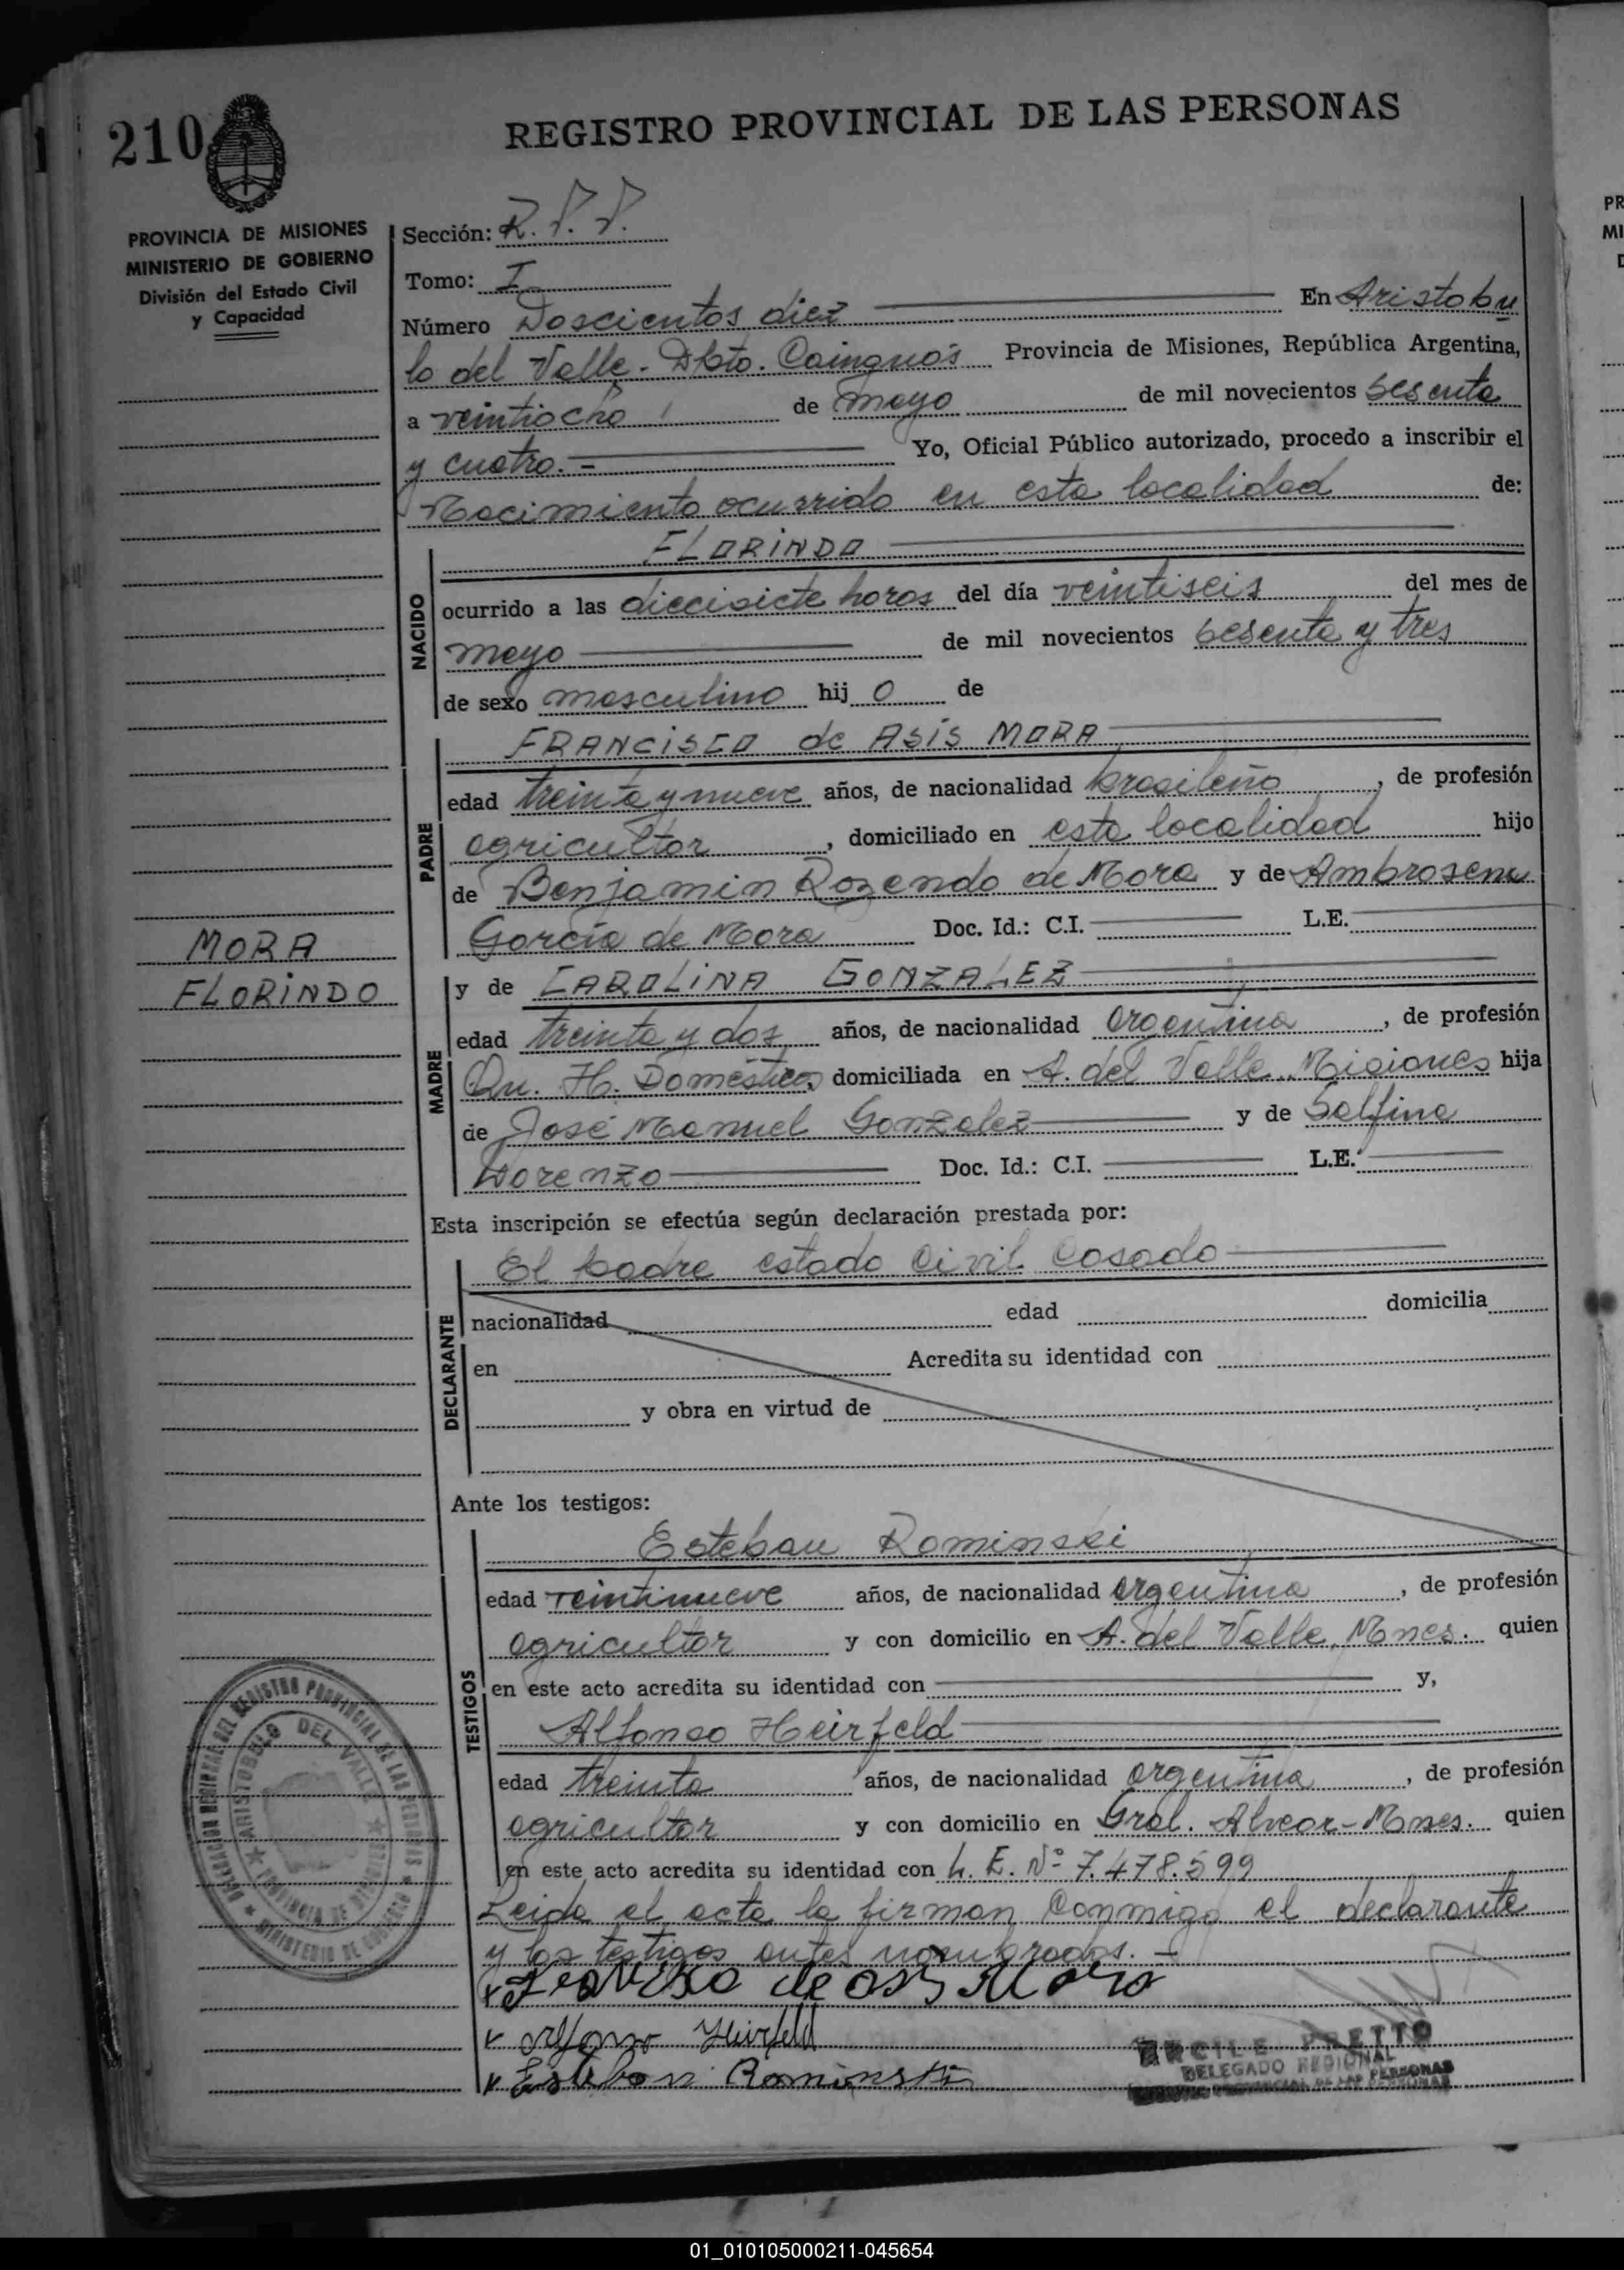 210
REGISTRO PROVINCIAL DE LAS PERSONAS
PROVINCIA DE MISIONES
MINISTERIO DE GOBIERNO
División del Estado Civil
y Capacidad
Sección: R.P.P.
Tomo: I
Número Doscientos diez En Aristobu
lo del Valle - Dpto. Cainguás Provincia de Misiones, República Argentina,
a veintiocho de mayo de mil novecientos sesenta
y cuatro.- Yo, Oficial Público autorizado, procedo a inscribir el
Nacimiento ocurrido en esta localidad de:
NACIDO
FLORINDO
ocurrido a las diecisiete horas del día veintiseis del mes de
mayo de mil novecientos sesenta y tres
de sexo masculino hij o de
PADRE
FRANCISCO de ASIS MORA
edad treinta y nueve años, de nacionalidad brasileño, de profesión
agricultor, domiciliado en esta localidad hijo
de Benjamin Rozendo de Mora y de Ambrosena
García de Mora Doc. Id.: C.I. L.E.
MORA
FLORINDO
MADRE
y de CAROLINA GONZALEZ
edad treinta y dos años, de nacionalidad argentina, de profesión
Qu. H. Domésticos, domiciliada en A. del Valle Misiones hija
de José Manuel Gonzalez y de Salfina
Lorenzo Doc. Id.: C.I. L.E.
Esta inscripción se efectúa según declaración prestada por:
DECLARANTE
El padre estado civil casado
nacionalidad edad domicilia
en Acredita su identidad con
y obra en virtud de
Ante los testigos:
TESTIGOS
Esteban Rominski
edad veintinueve años, de nacionalidad argentina, de profesión
agricultor y con domicilio en A. del Valle, Mnes. quien
en este acto acredita su identidad con y,
Alfonso Heirfeld
edad treinta años, de nacionalidad argentina, de profesión
agricultor y con domicilio en Gral. Alvear - Mnes. quien
en este acto acredita su identidad con L.E. Nº 7.478.599
Leida el acta la firman conmigo el declarante
y los testigos antes nombrados.-
Francisco de asis Mora
Alfonso Heirfeld
Esteban Rominski
DEL REGISTRO PROVINCIAL DE LAS PERSONAS
MINISTERIO DE GOBIERNO
ARISTOBULO DEL VALLE
PROVINCIA DE MISIONES
PRETTO
DELEGADO REGIONAL
PROVINCIAL DE LAS PERSONAS
01_010105000211-045654